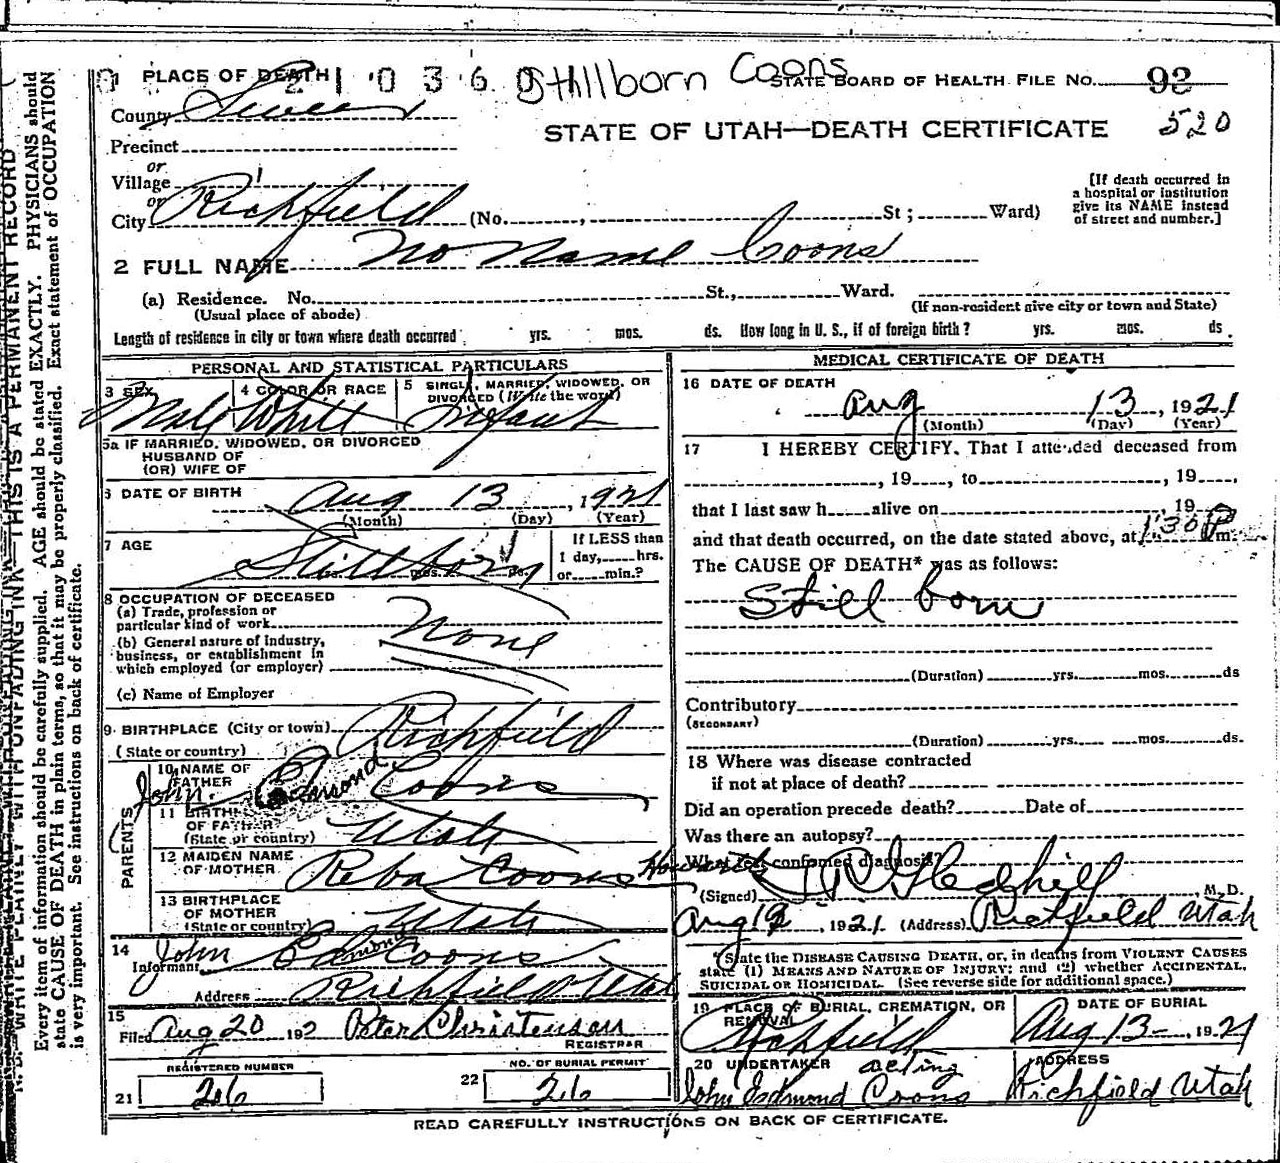 PLACE OF DEATH 2 1 0 3 6 0 Stillborn Coons STATE BOARD OF HEALTH FILE NO. 93
County Sevier
STATE OF UTAH—DEATH CERTIFICATE 520
Precinct
or
Village
or
City Richfield (No. , St ; Ward)
[If death occurred in
a hospital or institution
give its NAME instead
of street and number.]
2 FULL NAME No Name Coons
(a) Residence. No. St., Ward.
(Usual place of abode) (If non-resident give city or town and State)
Length of residence in city or town where death occurred yrs. mos. ds. How long in U. S., if of foreign birth ? yrs. mos. ds.
PERSONAL AND STATISTICAL PARTICULARS
3 SEX 4 COLOR OR RACE 5 SINGLE, MARRIED, WIDOWED, OR
DIVORCED (Write the word)
Male White Infant
5a IF MARRIED, WIDOWED, OR DIVORCED
HUSBAND OF
(OR) WIFE OF
6 DATE OF BIRTH Aug 13, 1921
(Month) (Day) (Year)
7 AGE Stillborn yrs. mos. ds.
If LESS than
1 day, hrs.
or min.?
8 OCCUPATION OF DECEASED
(a) Trade, profession or
particular kind of work None
(b) General nature of industry,
business, or establishment in
which employed (or employer)
(c) Name of Employer
9. BIRTHPLACE (City or town) Richfield
(State or country)
PARENTS
10 NAME OF
FATHER John Edmond Coons
11 BIRTHPLACE
OF FATHER
(State or country) Utah
12 MAIDEN NAME
OF MOTHER Reba Coons
13 BIRTHPLACE
OF MOTHER
(State or country) Utah
14
Informant John Edmond Coons
Address Richfield Utah
15
Filed Aug 20 192 Peter Christensen
REGISTRAR
REGISTERED NUMBER NO. OF BURIAL PERMIT
21 26 22 26
MEDICAL CERTIFICATE OF DEATH
16 DATE OF DEATH
Aug 13, 1921
(Month) (Day) (Year)
17 I HEREBY CERTIFY, That I attended deceased from
, 19 , to , 19 ,
that I last saw h alive on 19
and that death occurred, on the date stated above, at 1:30 P m.
The CAUSE OF DEATH* was as follows:
Still born
(Duration) yrs. mos. ds
Contributory
(SECONDARY)
(Duration) yrs. mos. ds.
18 Where was disease contracted
if not at place of death?
Did an operation precede death? Date of
Was there an autopsy?
What test confirmed diagnosis?
(Signed) Gledhill, M. D.
Aug 19, 1921 (Address) Richfield Utah
*State the DISEASE CAUSING DEATH, or, in deaths from VIOLENT CAUSES
state (1) MEANS AND NATURE OF INJURY; and (2) whether ACCIDENTAL,
SUICIDAL OR HOMICIDAL. (See reverse side for additional space.)
19 PLACE OF BURIAL, CREMATION, OR
REMOVAL DATE OF BURIAL
Richfield Aug 13-, 1921
20 UNDERTAKER acting ADDRESS
John Edmond Coons Richfield Utah
READ CAREFULLY INSTRUCTIONS ON BACK OF CERTIFICATE.
WRITE PLAINLY WITH UNFADING INK—THIS IS A PERMANENT RECORD
Every item of information should be carefully supplied. AGE should be stated EXACTLY. PHYSICIANS should
state CAUSE OF DEATH in plain terms, so that it may be properly classified. Exact statement of OCCUPATION
is very important. See instructions on back of certificate.